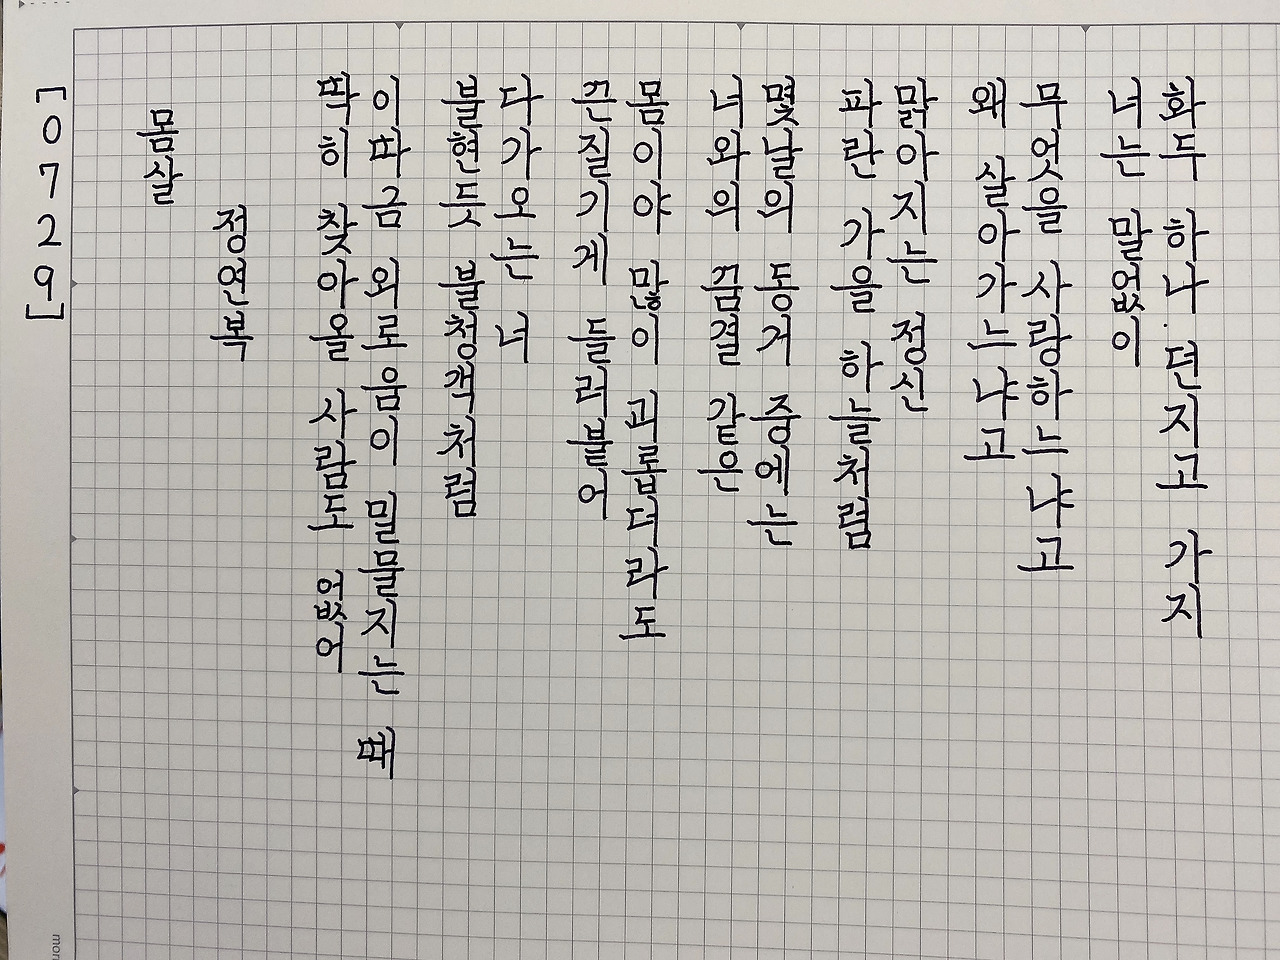 [0729]
몸살
정연복
딱히 찾아올 사람도 없어
이따금 외로움이 밀물지는 때
불현듯 불청객처럼
다가오는 너
끈질기게 들러붙어
몸이야 많이 괴롭더라도
너와의 꿈결 같은
몇날의 동거 중에는
파란 가을 하늘처럼
맑아지는 정신
왜 살아가느냐고
무엇을 사랑하느냐고
너는 말없이
화두 하나 던지고 가지